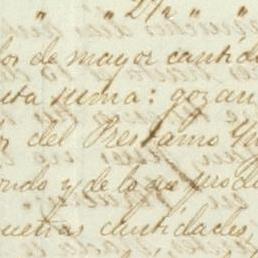 " " 2 1/2 " "
los de mayor cantid
uta suma: gozan
del Prestamo
ondo y de lo que produ
queñas cantidades,